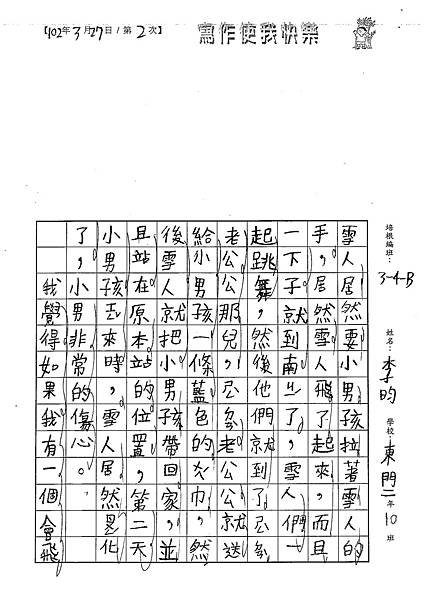 【102年3月27日/第2次】
寫作使我快樂
培根編班：3-4-B
姓名：李昀 學校：東門二年10班
雪人居然要小男孩拉著雪人的
手，居然雪人飛了起來，而且
一下子就到南 了，雪人們一
起跳舞，然後他們就到了
老公公那兒， 老公公就送
給小男孩一條藍色的 巾，然
後雪人就把小男孩帶回家，並
且站在原本站的位置，第二天
小男孩去來時，雪人居然是化
了，小男非常的傷心。
我覺得如果我有一個會飛